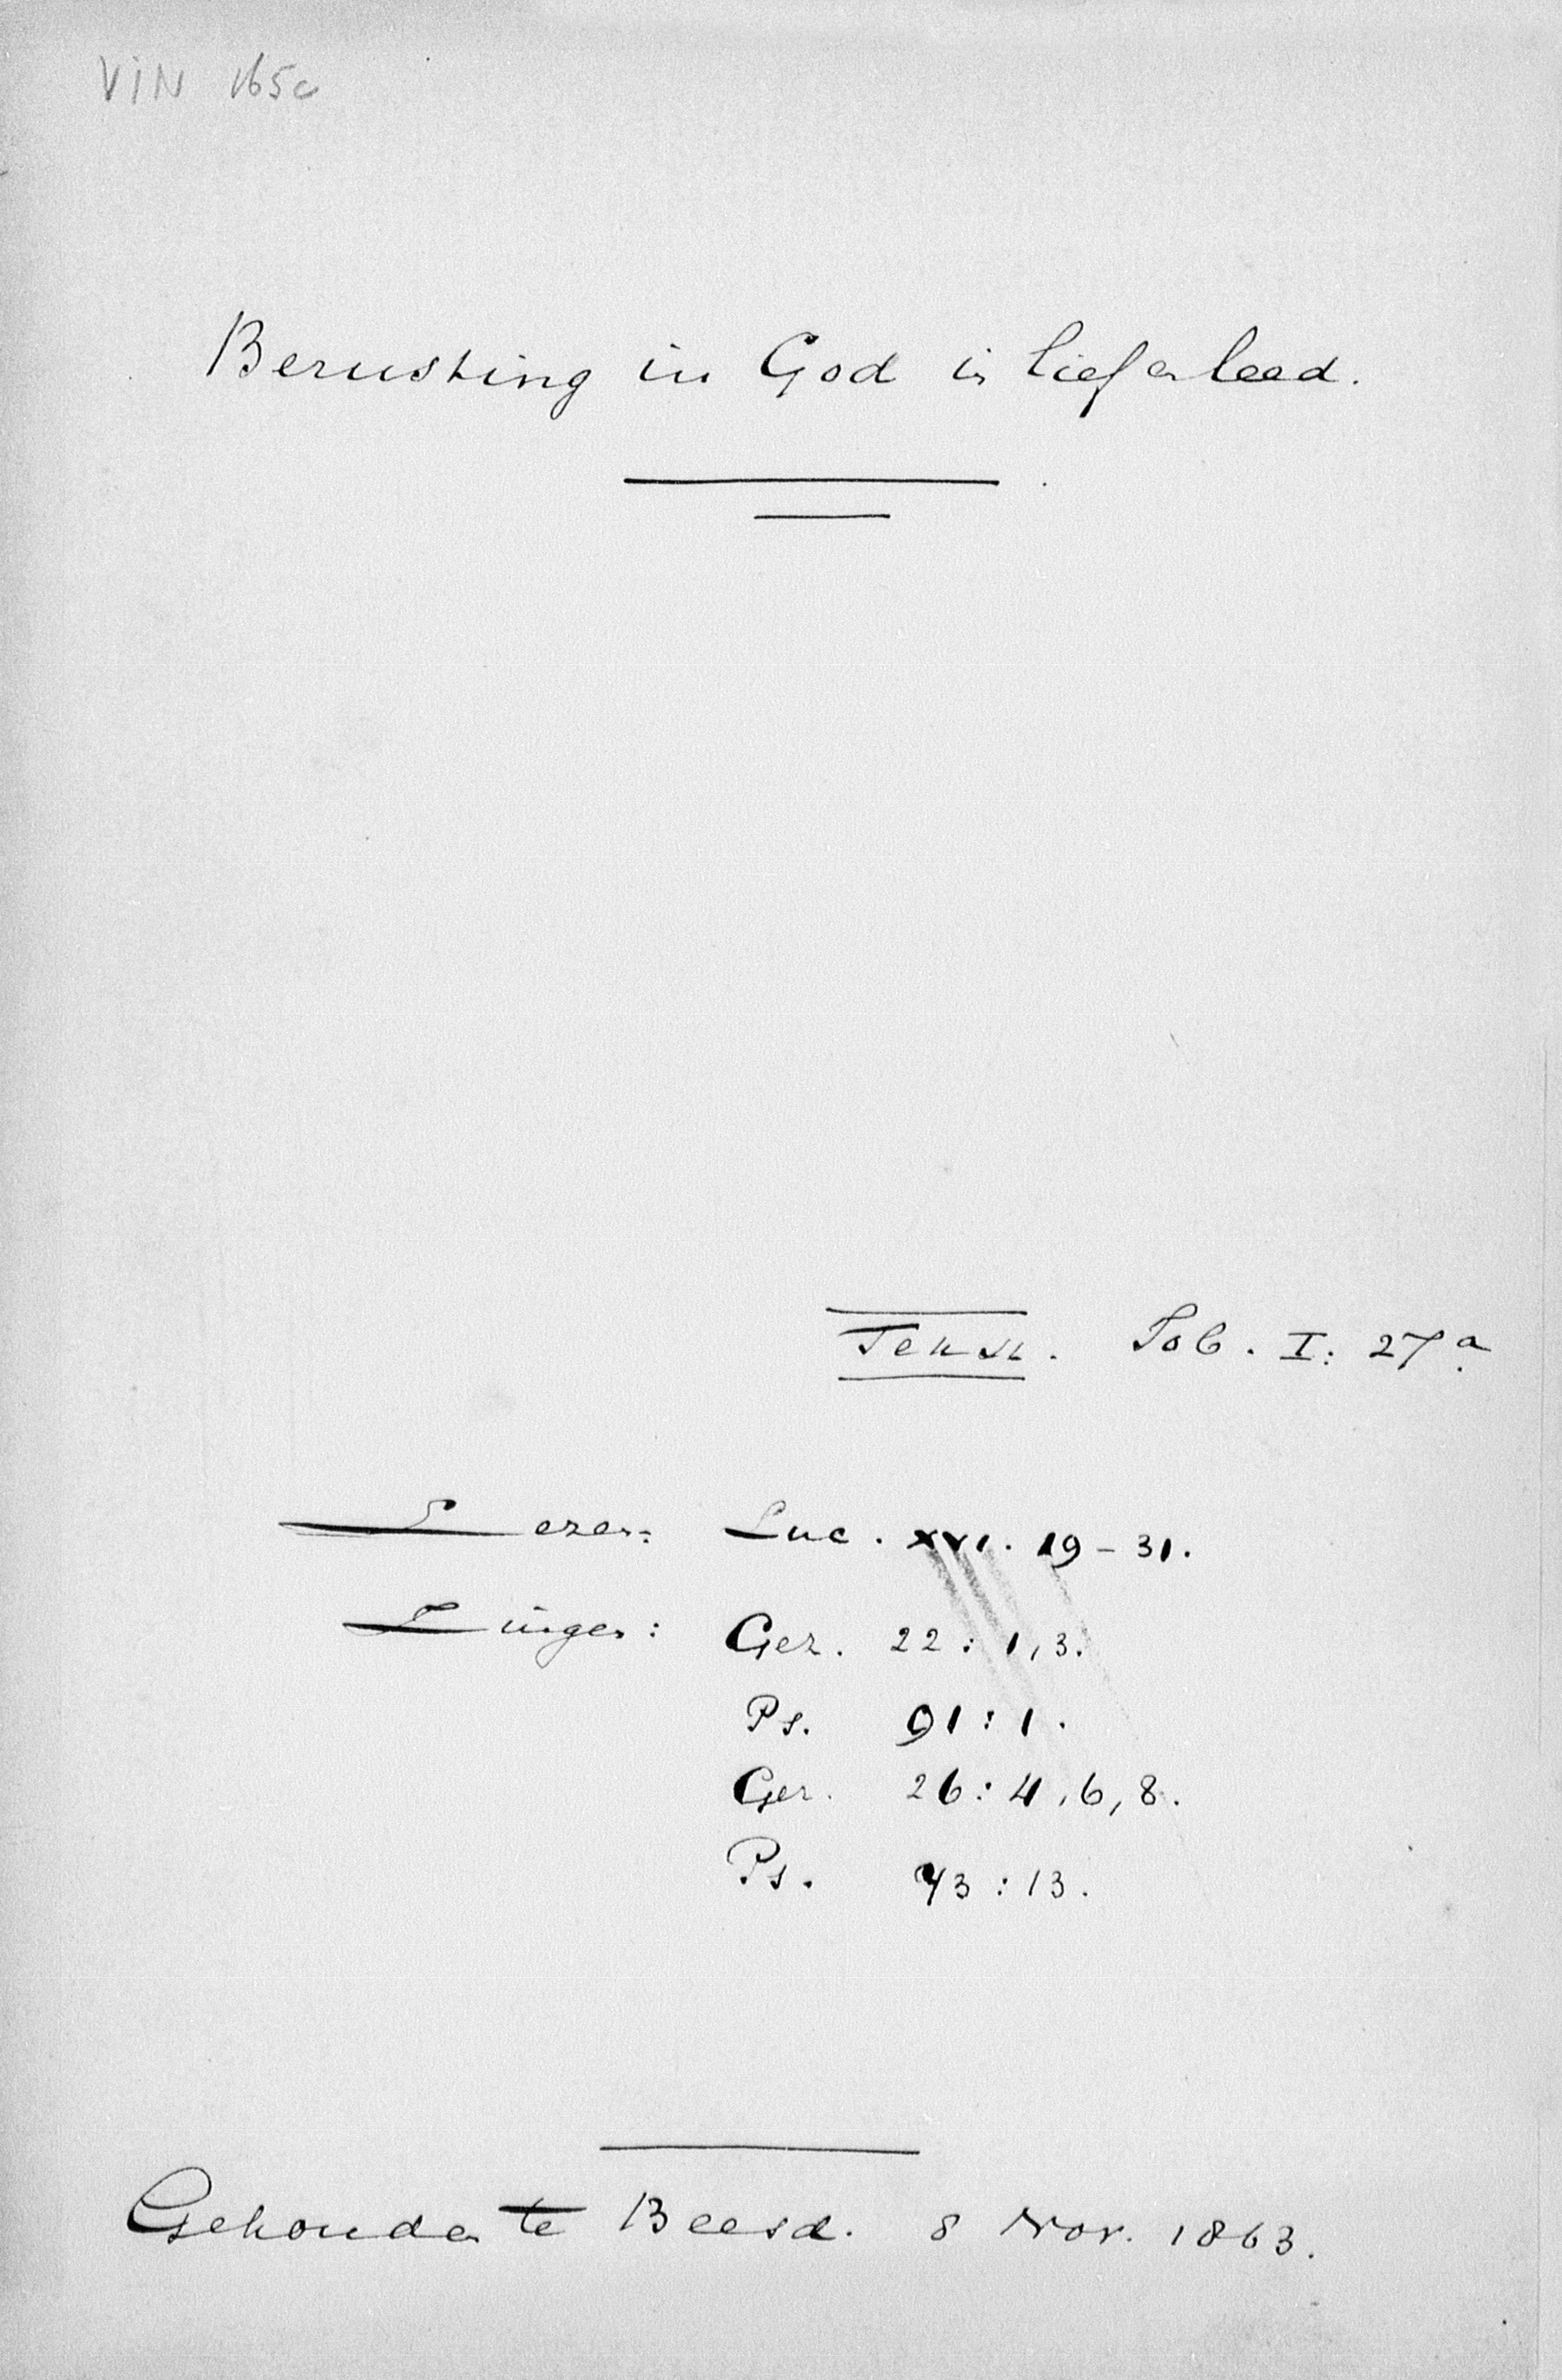 VIN 165c
Berusting in God in lief en leed.
Tekst. Job. I: 21a.
Lezen: Luc. XVI. 19-31.
Zingen: Gez. 22: 1,3.
Ps. 91: 1.
Gez. 26: 4,6,8.
Ps. 73: 13.
Gehouden te Beesd. 8 Nov. 1863.